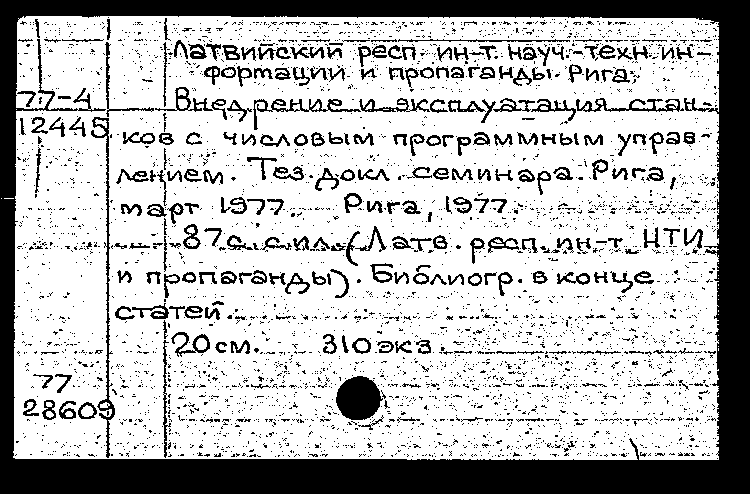 Латвийский респ. ин-т. науч.-техн. ин-
формации и пропаганды. Рига.
77-4
Внедрение и эксплуатация стан-
12445
ков с числовым программным управ-
лением. Тез. докл. семинара. Рига,
март 1977. Рига, 1977.
87 с. с ил. (Латв. респ. ин-т НТИ
и пропаганды). Библиогр. в конце
статей.
20 см. 310 экз.
77
28609